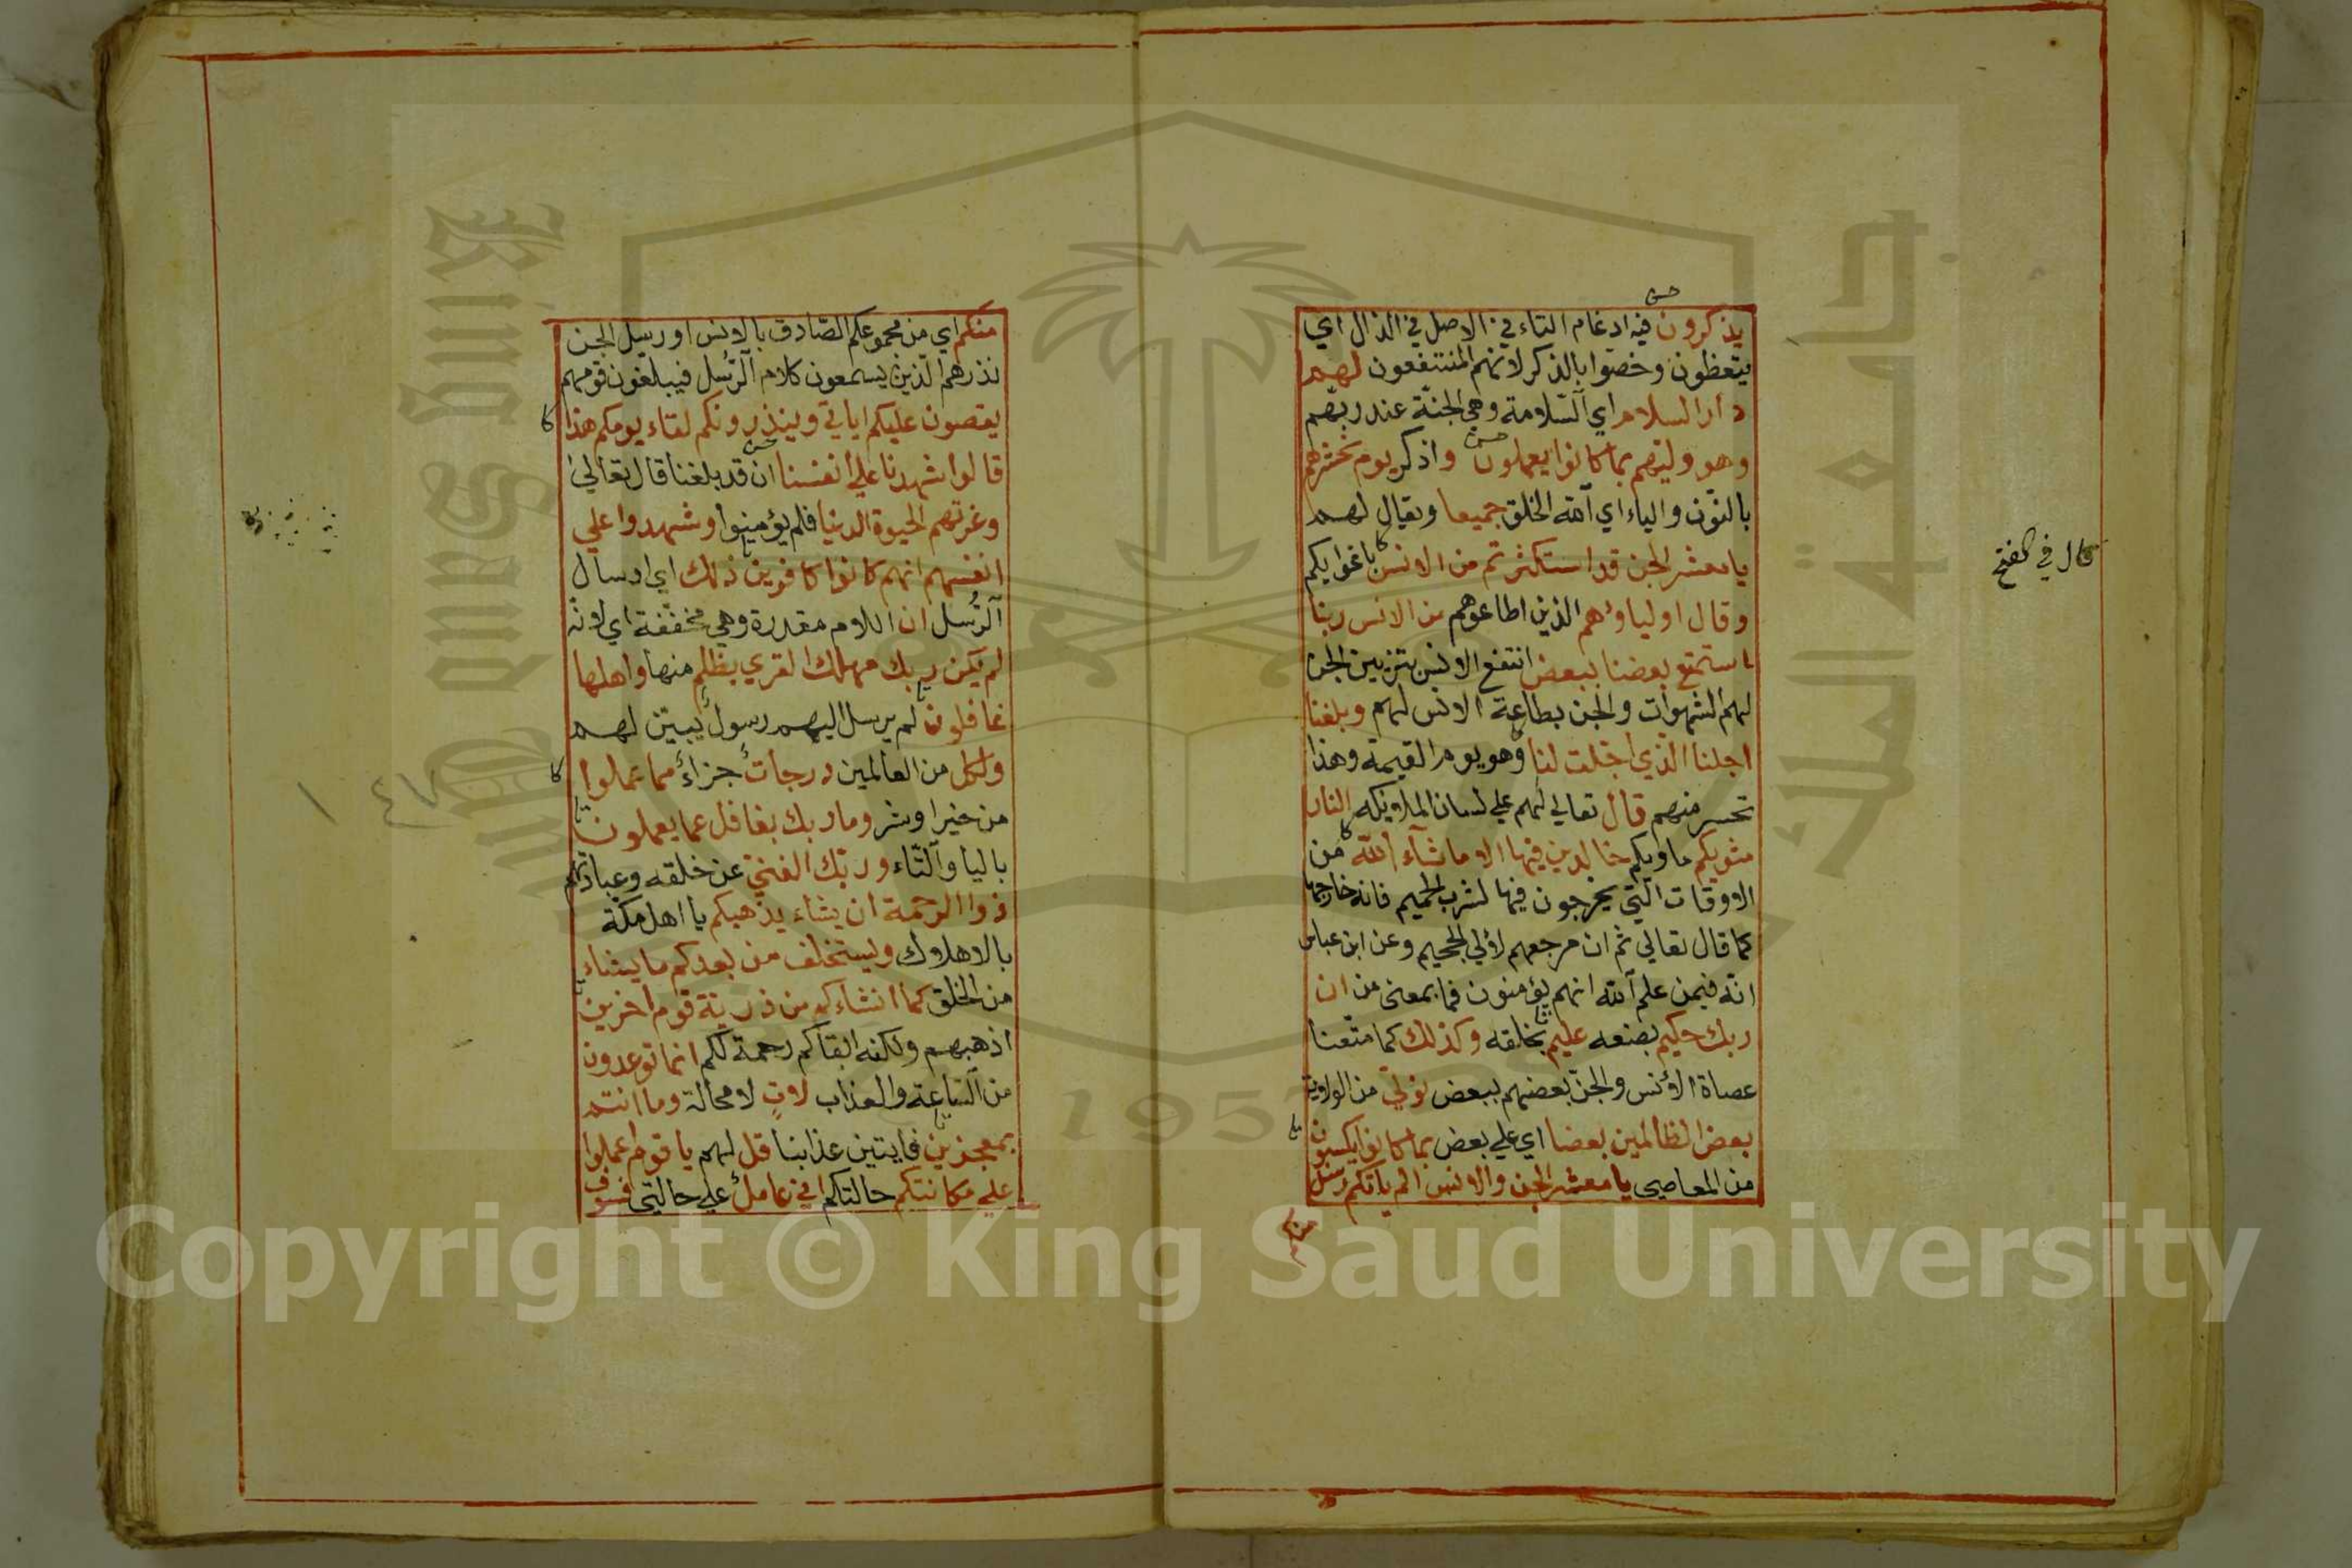 يذكرون فيه ادغام التاء في الاصل في الذال اي
يتعظون وخصوا بالذكر لانهم المنتفعون لهم
دار السلام اي السلامة وهي الجنة عند ربهم
وهو وليهم بما كانوا يعملون واذكر يوم نحشرهم
بالنون والياء اي الله الخلق جميعا ويقال لهم
يا معشر الجن قد استكثرتم من الانس باغوايكم
وقال اولياؤهم الذين اطاعوهم من الانس ربنا
استمتع بعضنا ببعض انتفع الانس بتزيين الجن
لهم الشهوات والجن بطاعة الانس لهم وبلغنا
اجلنا الذي اجلت لنا وهو يوم القيمة وهذا
تحسر منهم قال تعالى لهم علي لسان الملايكه النار
مثويكم ماويكم خالدين فيها الا ما شاء الله من
الاوقات التي يخرجون فيها لشرب الحميم فانه خارجها
كما قال تعالي ثم ان مرجعهم لالي الجحيم وعن ابن عباس
انه فيمن علم الله انهم يؤمنون فما بمعني من ان
ربك حكيم بصنعه عليم بخلقه وكذلك كما متعنا
عصاة الانس والجن بعضهم ببعض نولي من الولاية
بعض الظالمين بعضا اي علي بعض بما كانوا يكسبون
من المعاصي يا معشر الجن والانس الم ياتكم رسل
منكم
قال في الفتح
منكم اي من مجموعكم الصادق بالانس او رسل الجن
نذرهم الذين يسمعون كلام الرسل فيبلغون قومهم
يقصون عليكم اياتي وينذرونكم لقاء يومكم هذا
قالوا شهدنا علي انفسنا ان قد بلغنا قال تعالي
وغرتهم الحيوة الدنيا فلم يؤمنوا وشهدوا علي
انفسهم انهم كانوا كافرين ذلك اي ارسال
الرسل ان اللام مقدرة وهي مخففة اي لانه
لم يكن ربك مهلك القري بظلم منها واهلها
غافلون لم يرسل اليهم رسول يبين لهم
ولكل من العالمين درجات جزاء مما عملوا
من خير او شر وما ربك بغافل عما يعملون
باليا والتاء وربك الغني عن خلقه وعبادتهم
ذوا الرحمة ان يشاء يذهبكم يا اهل مكة
بالاهلاك ويستخلف من بعدكم ما يشاء
من الخلق كما انشاءكم من ذرية قوم اخرين
اذهبهم ولكنه ابقاكم رحمة لكم انما توعدون
من الساعة والعذاب لات لا محالة وما انتم
بمعجزين فايتين عذابنا قل لهم يا قوم اعملوا
علي مكانتكم حالتكم اني عامل علي حالتي فسوف
جامعة الملك
King
1957
Copyright © King Saud University